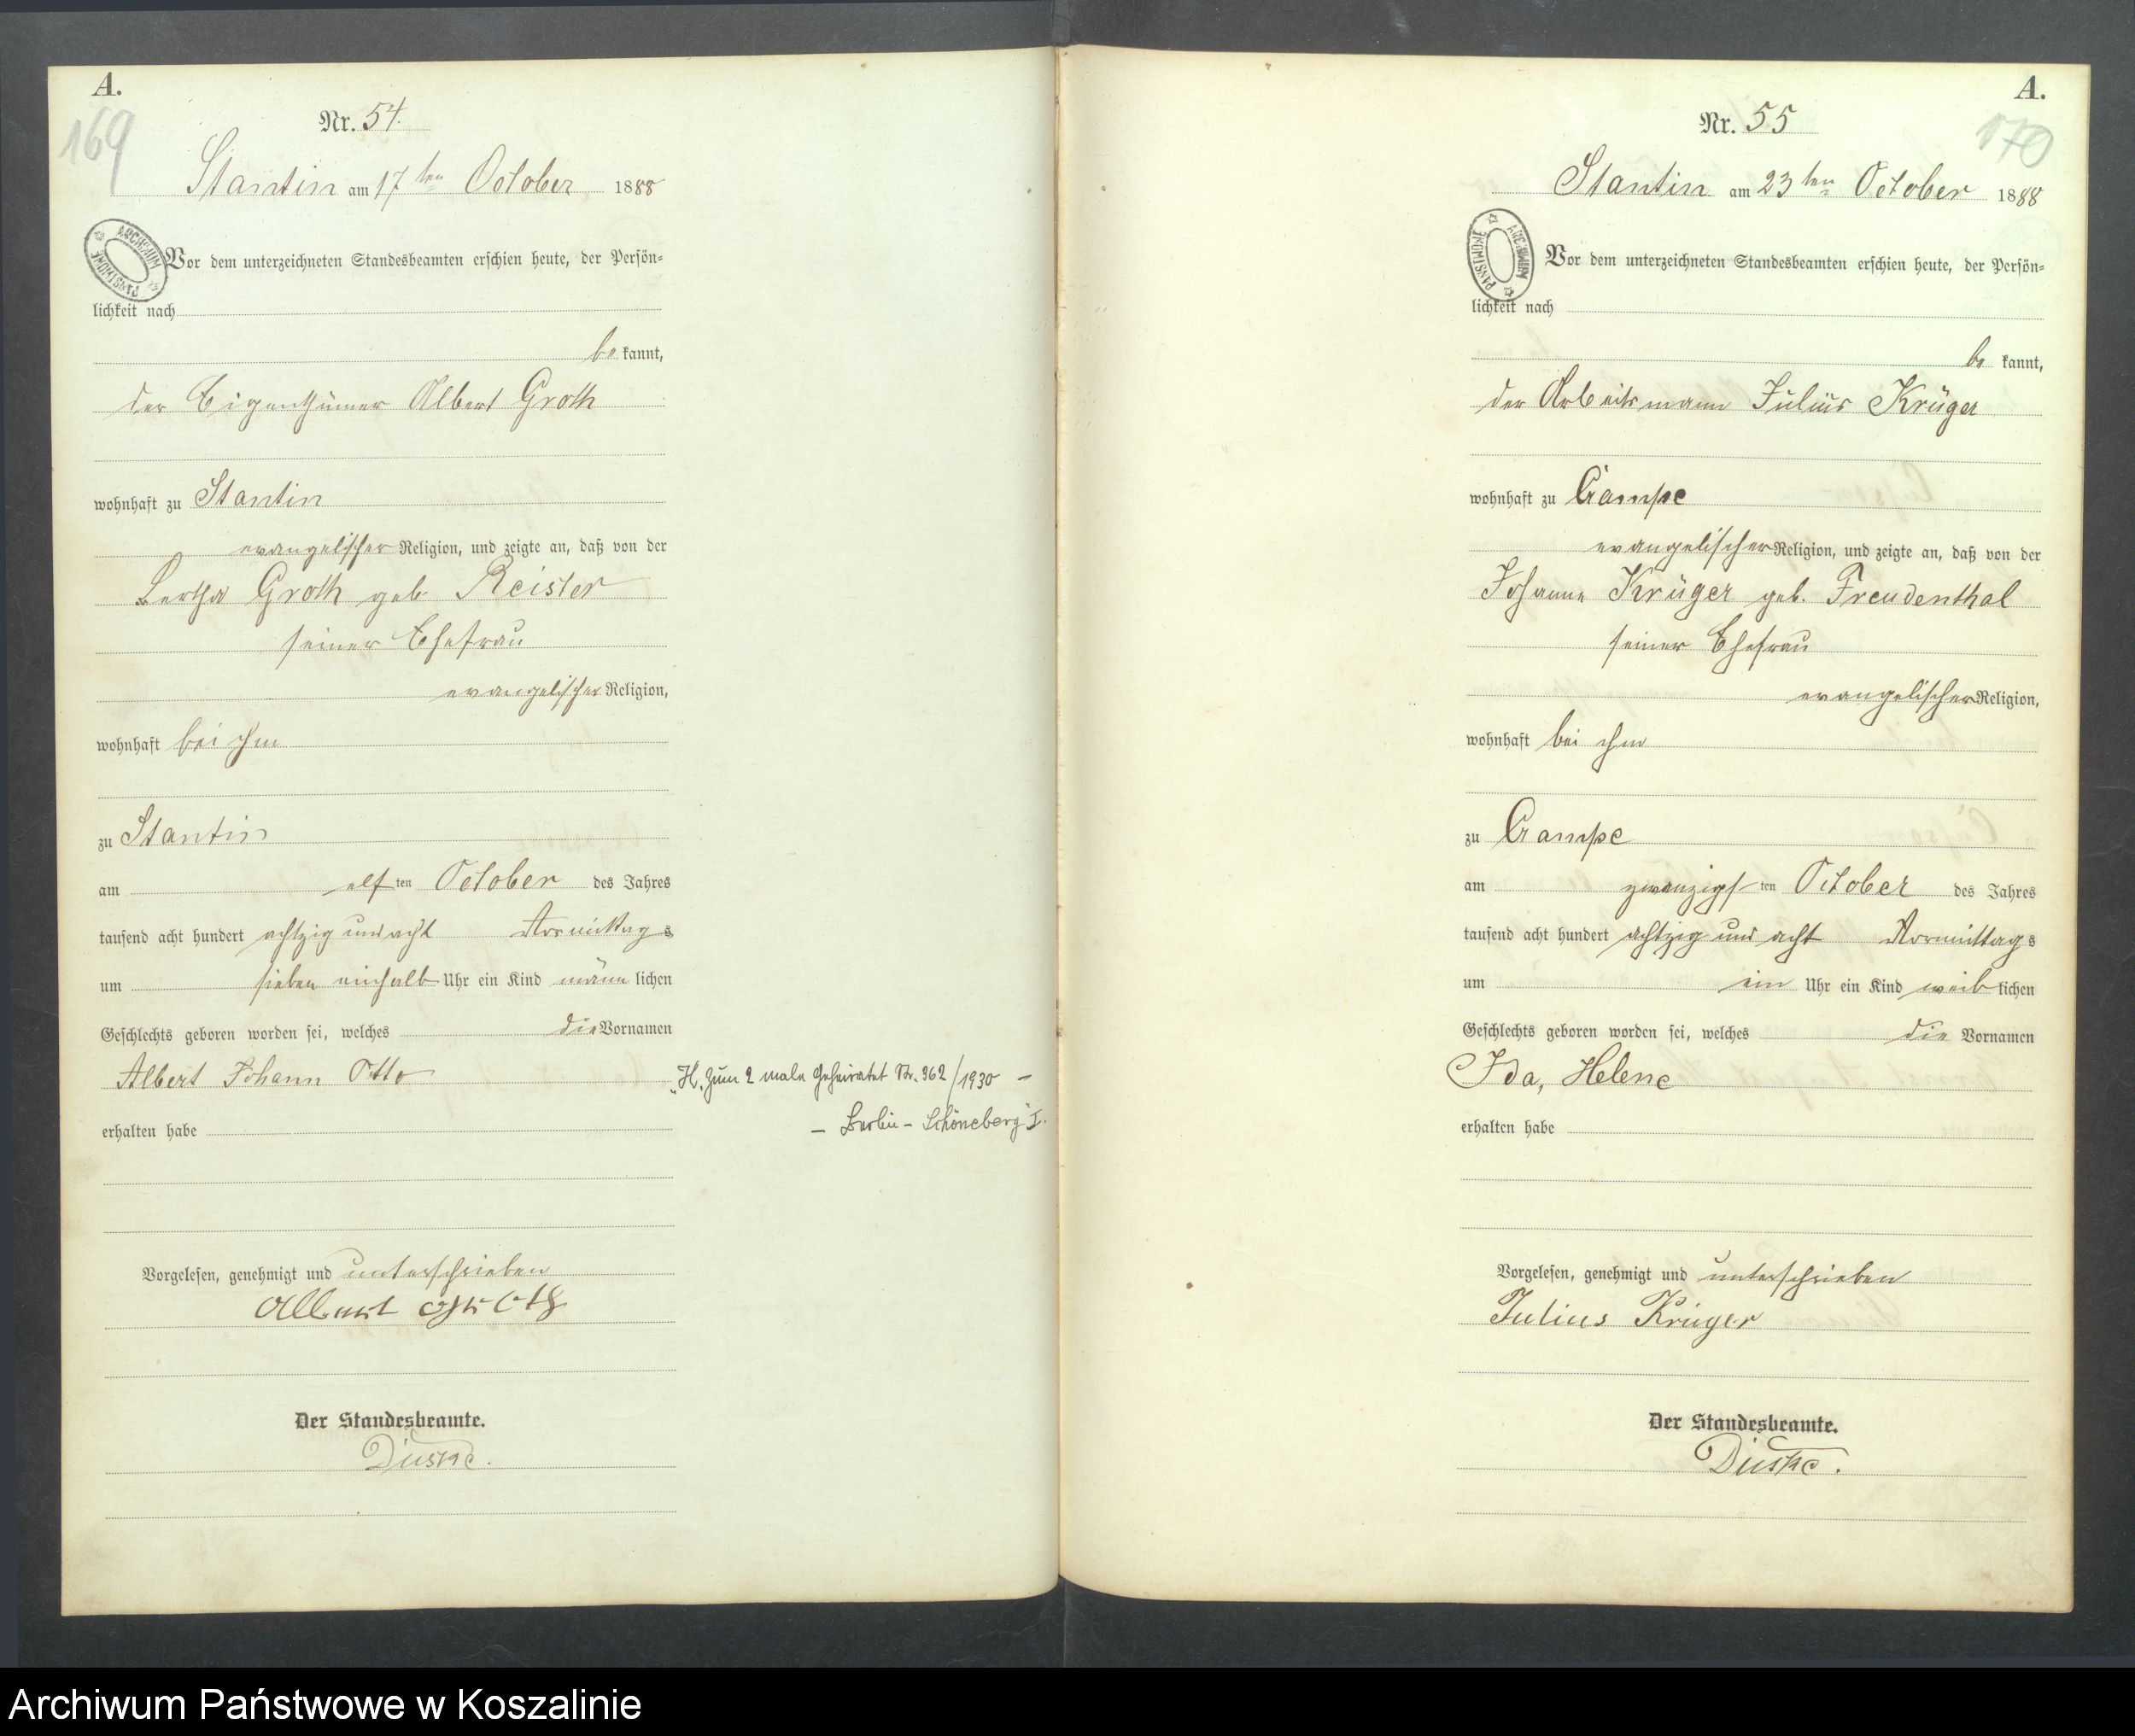 A.
169
Nr. 54.
Stantin am 17ten October 1888
ARCHIWUM PAŃSTWOWE
Vor dem unterzeichneten Standesbeamten erschien heute, der Persön-
lichkeit nach
be kannt,
der Eigenthümer Albert Groth
wohnhaft zu Stantin
evangelischer Religion, und zeigte an, daß von der
Bertha Groth geb. Reister
seiner Ehefrau
evangelischer Religion,
wohnhaft bei ihm
zu Stantin
am elf ten October des Jahres
tausend acht hundert achtzig und acht Vormittags
um sieben einhalb Uhr ein Kind männ lichen
Geschlechts geboren worden sei, welches die Vornamen
Albert Johann Otto
erhalten habe
„H. Zum 2 male geheiratet Nr. 362/1930 –
– Berlin – Schöneberg I.“
Vorgelesen, genehmigt und unterschrieben
Albert Groth
Der Standesbeamte.
Duske.
A.
170
Nr. 55
Stantin am 23ten October 1888
ARCHIWUM PAŃSTWOWE
Vor dem unterzeichneten Standesbeamten erschien heute, der Persön-
lichkeit nach
be kannt,
der Arbeitsmann Julius Krüger
wohnhaft zu Gampe
evangelischer Religion, und zeigte an, daß von der
Johanne Krüger geb. Freudenthal
seiner Ehefrau
evangelischer Religion,
wohnhaft bei ihm
zu Gampe
am zwanzigs ten October des Jahres
tausend acht hundert achtzig und acht Vormittags
um ein Uhr ein Kind weib lichen
Geschlechts geboren worden sei, welches die Vornamen
Ida, Helene
erhalten habe
Vorgelesen, genehmigt und unterschrieben
Julius Krüger
Der Standesbeamte.
Duske.
Archiwum Państwowe w Koszalinie